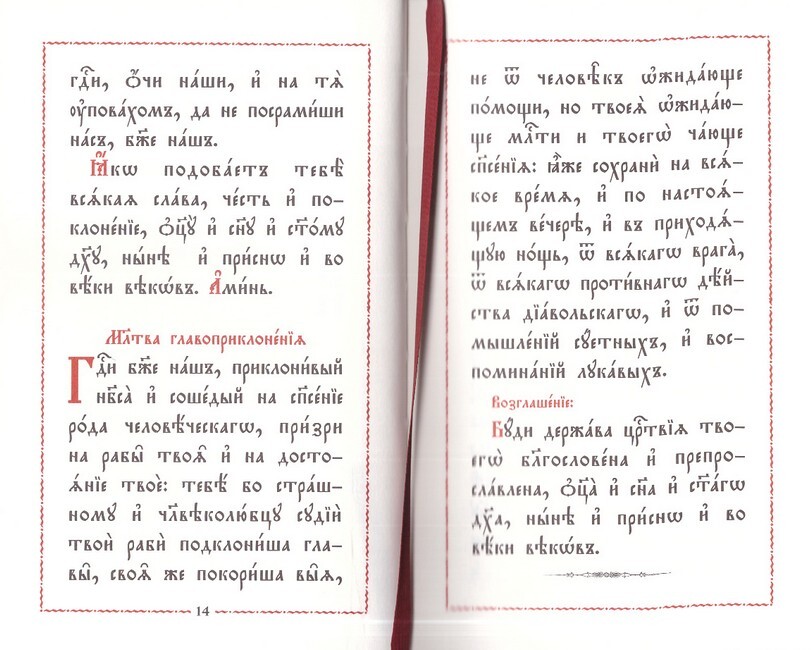 гдⷭ҇и, ѻ҆́чи на́ши, и҆ на тѧ̀
ᲂу҆пова́хомъ, да не посрами́ши
на́съ, бж҃е на́шъ.
Ꙗ҆́кѡ подоба́етъ тебѣ̀
всѧ́каѧ сла́ва, че́сть и҆ по-
клоне́нїе, ѻ҆ц҃ꙋ̀ и҆ сн҃ꙋ и҆ ст҃о́мꙋ
дх҃ꙋ, ны́нѣ и҆ при́снѡ и҆ во
вѣ́ки вѣкѡ́въ. А҆ми́нь.
Мл҃тва главоприклоне́нїѧ
Гдⷭ҇и бж҃е на́шъ, приклони́вый
нб҃са̀ и҆ соше́дый на сп҃се́нїе
ро́да человѣ́ческагѡ, при́зри
на рабы̑ твоѧ̑ и҆ на досто-
ѧ́нїе твоѐ: тебѣ́ бо стра́ш-
номꙋ и҆ чл҃вѣколю́бцꙋ сꙋдїѝ
твоѝ рабѝ подклони́ша гла-
вы̑, своѧ̑ же покори́ша вы̑ѧ,
14
не ѿ человѣ̑къ ѡ҆жида́юще
по́мощи, но твоеѧ̀ ѡ҆жида́ю-
ще млⷭ҇ти и твоегѡ̀ ча́юще
сп҃се́нїѧ: ꙗ҆̀же сохранѝ на всѧ́-
кое вре́мѧ, и҆ по настоѧ́-
щемъ ве́черѣ, и҆ въ приходѧ́-
щꙋю но́щь, ѿ всѧ́кагѡ врага̀,
ѿ всѧ́кагѡ проти́внагѡ дѣ́й-
ства дїа́вольскагѡ, и҆ ѿ по-
мышле́нїй сꙋ́етныхъ, и҆ вос-
помина́нїй лꙋка́выхъ.
Возглаше́нїе:
Бꙋ́ди держа́ва црⷭ҇твїѧ тво-
егѡ̀ бл҃гослове́на и҆ препро-
сла́влена, ѻ҆ц҃а̀ и҆ сн҃а и҆ ст҃а́гѡ
дх҃а, ны́нѣ и҆ при́снѡ и҆ во
вѣ́ки вѣкѡ́въ.